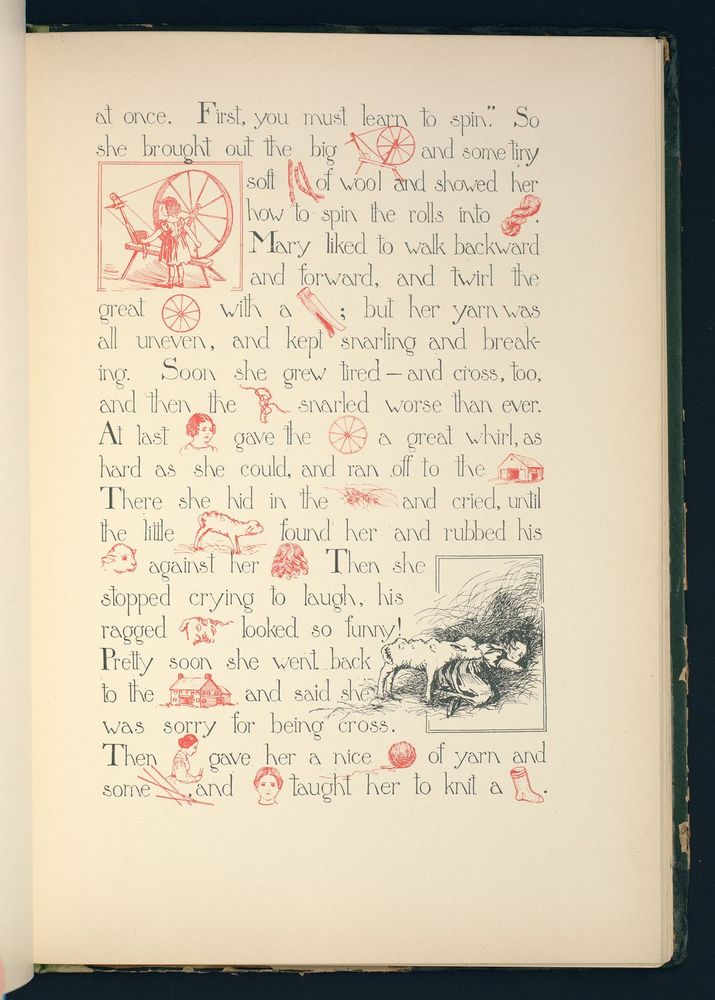 at once. First, you must learn to spin." So
she brought out the big and some tiny
soft of wool and showed her
how to spin the rolls into .
Mary liked to walk backward
and forward, and twirl the
great with a ; but her yarn was
all uneven, and kept snarling and break-
ing. Soon she grew tired — and cross, too,
and then the snarled worse than ever.
At last gave the a great whirl, as
hard as she could, and ran off to the
There she hid in the and cried, until
the little found her and rubbed his
against her Then she
stopped crying to laugh, his
ragged looked so funny!
Pretty soon she went back
to the and said she
was sorry for being cross.
Then gave her a nice of yarn and
some , and taught her to knit a .